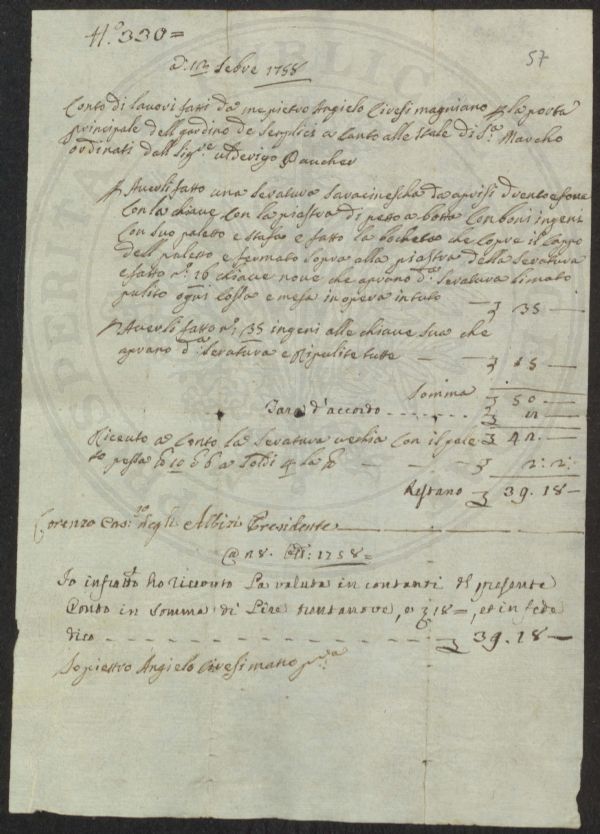 N.° 330=
57
a. 12 Sebre 1758
Conto di lavori fatti da me pietro Angielo Civesi magniano p la porta
principale dell gardino de Senplici a canto alle Stale di S. Marcho
ordinati dall Sig.re Ulderigo Paucher
p Averli fatto una Seratura Saracinescha da aprisi drento e fore
Con la chiave Con la piastra di petto a botta Con boni ingeni
Con suo paletto e stafa e fatto la bocheta che copre il
dell paletto e fermato Sopra alla piastra della Seratura
e fatto n.° 26 chiave nove che aprano d.a Seratura limato
pulito ogni cossa e messa in opera in tuto — 35 —
p Averli fatto n.° 35 ingeni alle chiave sua che
aprano d.a Seratura e Ripulite tutte — — 15 —
Somma 50 —
Tara d'accordo - - - - -
Riceuto a Conto la Seratura vechia con il pale 42 —
to pessa 10 6 a Soldi 4 la — — — 2: 2:
Restano 39. 18 —
Lorenzo Cas.° degli Albizi Presidente
18 1758 =
Io infritto ho ricevuto La valuta in contanti del presente
Conto in Somma di Lire trentanove, e 18 =, et in fede
dico - - - - - - - 39. 18 —
Io pietro Angielo Civesi mano pp.a